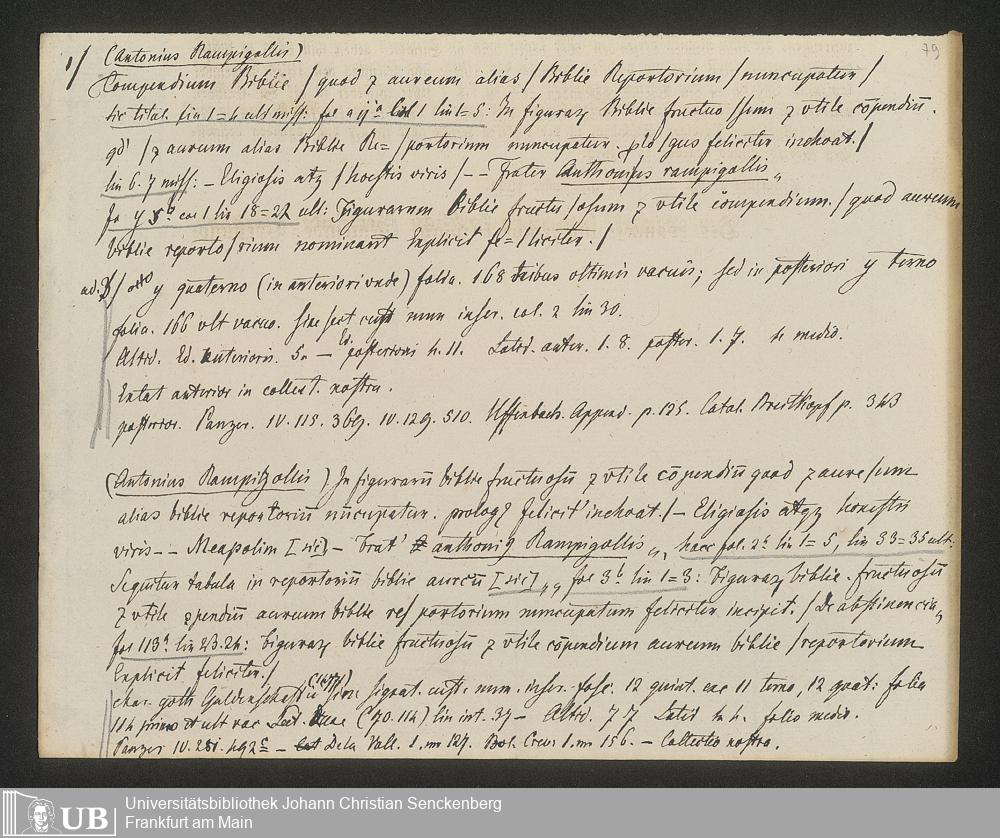 79
1/ (Antonius Rampigollis)
Compendium Biblie / quod z aureum alias / Biblie Reportorium / nuncupatur /
sic titul. lin 1=4 ult miss: fol a ij a col 1 lin 1=5: In figuraz Biblie fructuo / sum z vtile cōpendiū.
qd' / z aureum alias Biblie Re= / portorium nuncupatur. plo / gus feliciter inchoat. /
lin 6. 7 miss: – Eligiosis atqz / hoestis viris / – – Frater Anthonius rampigollis „
fo y 5 b col 1 lin 18=22 ult: Figurarum biblie fructu / osum z vtile cōmpendium. / quod aureum
biblie reporto / rium nominant Explicit fe= / liciter. /
y quaterno (in anteriori unde) folia. 168 tribus ultimis vacuis; sed in posteriori y terno
folia. 166 ult vacuo. sine sect cust num inscr. col. 2 lin 30.
Altid. Ed. anterioris. 5. – Ed. posterioris 4. 11. Latid. anter. 1. 8. poster. 1. 7. 4 medio.
Extat anterior in collect. nostra.
posterior. Panzer. IV. 115. 369. IV. 129. 510. Uffenbach. Append. p. 125. Catal. Breitkopf p. 343
(Antonius Rampigollis) In figurarū biblie fructuosū z vtile cōpendiū quod z aure / um
alias biblie reportoriū nūcupatur. prologz felicit' inchoat. / – Eligiosis atqz honestis
viris – – Neapolim [sic] – Frat' anthoniz Rampigollis „, haec fol. 2a lin 1=5, lin 33=35 ult:
Sequitur tabula in reportoriū biblie aureū [sic] „„ fol 3b lin 1=3: Figuraz biblie. fructuosū
z vtile pendiū aureum biblie re / portorium nuncupatum feliciter incipit. / De abstinencia„
fol 113a lin 23.24: Figuraz biblie fructuosū z vtile cōpendium aureum biblie / reportorium
Explicit feliciter. /
char. goth Guldenschaff signat. cust. num. inscr. fasc. 12 quint. exc 11 terno, 12 quat: folia
114 primo et ult vac (70. 114) lin int. 37 – Altid. 7 7 Latid 4 4. folio medio.
Panzer IV. 281. 492 c – De la Vall. 1. nr 127. Bol. Crev. 1. nr 156. – Collectio nostra.
UB
Universitätsbibliothek Johann Christian Senckenberg
Frankfurt am Main